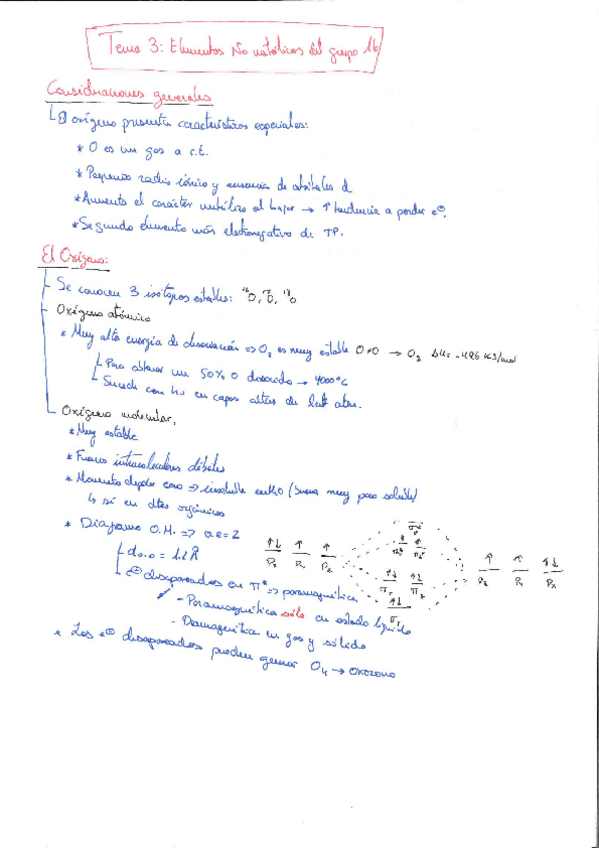 Tema 3: Elementos No metálicos del grupo 16
Consideraciones generales
El oxígeno presenta características especiales:
* O es un gas a c.t.
* Pequeño radio iónico y ausencia de orbitales d
* Aumenta el carácter metálico al bajar → ↑ tendencia a perder e⊖.
* Segundo elemento más electronegativo de TP.
El Oxígeno:
Se conocen 3 isótopos estables: ¹⁶O, ¹⁷O, ¹⁸O
Oxígeno atómico
* Muy alta energía de disociación O₂ es muy estable O+O → O₂ ΔH= -496 KJ/mol
Para obtener un 50% O disociado → 4000°C
Sucede con hν en capas altas de la atm.
Oxígeno molecular,
* Muy estable
* Fuerzas intermoleculares débiles
* Momento dipolar cero ⇒ insoluble en H₂O (Suena muy poco soluble)
↳ sí en dtes orgánicos
* Diagrama O.M. ⇒ o.e = 2
d o-o = 1.2 Å
e⊖ desapareados en π* ⇒ paramagnética
- Paramagnética sólo en estado líquido
- Diamagnética en gas y sólido
* Los e⊖ desapareados pueden generar O₄ → oxozono
↑↓ ↑ ↑
↑ ↑ ↑↓